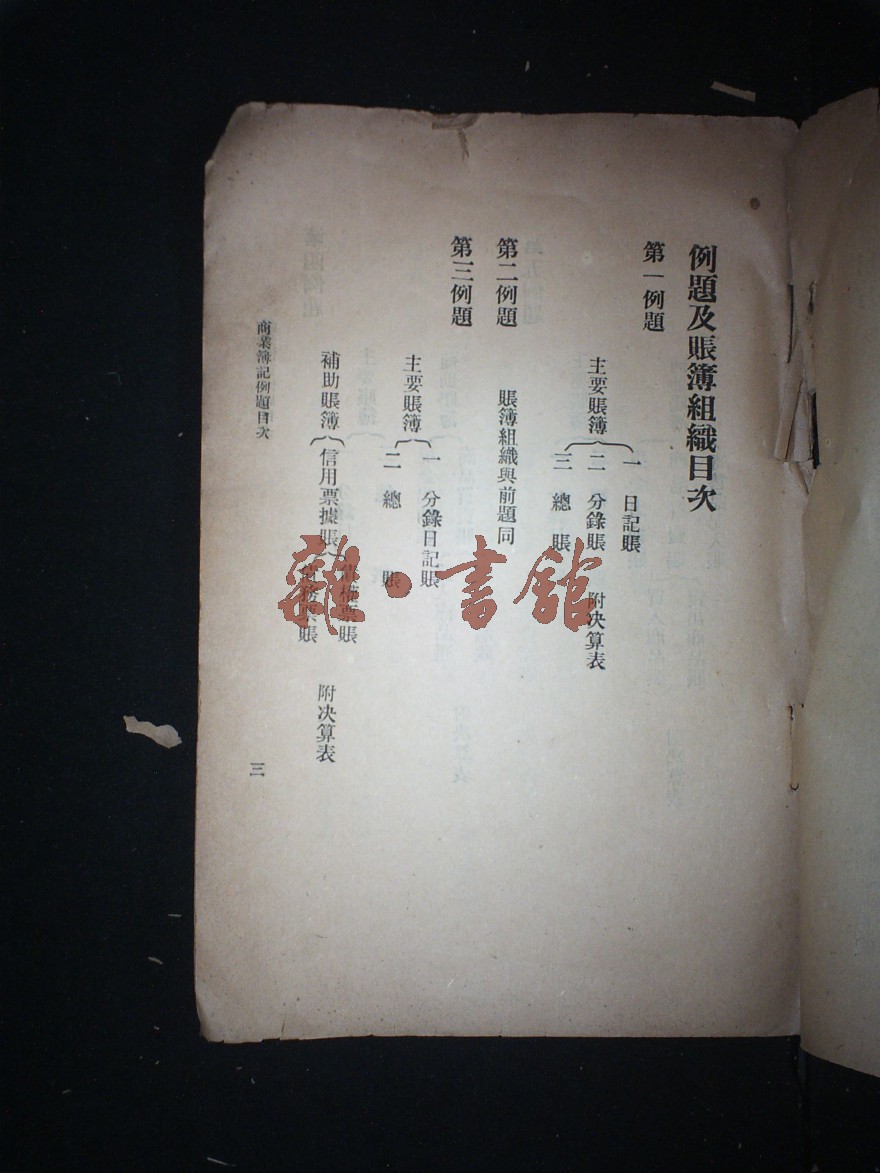 例題及賬簿組織目次
第一例題
主要賬簿
一 日記賬
二 分錄賬 附决算表
三 總賬
第二例題 賬簿組織與前題同
第三例題
主要賬簿
一 分錄日記賬
二 總賬
補助賬簿 信用票據賬 附决算表
債權票賬
債務票賬
商業簿記例題目次
三
雜·書館